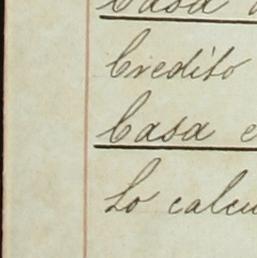 Casa
Credito
Casa e
Lo calcu